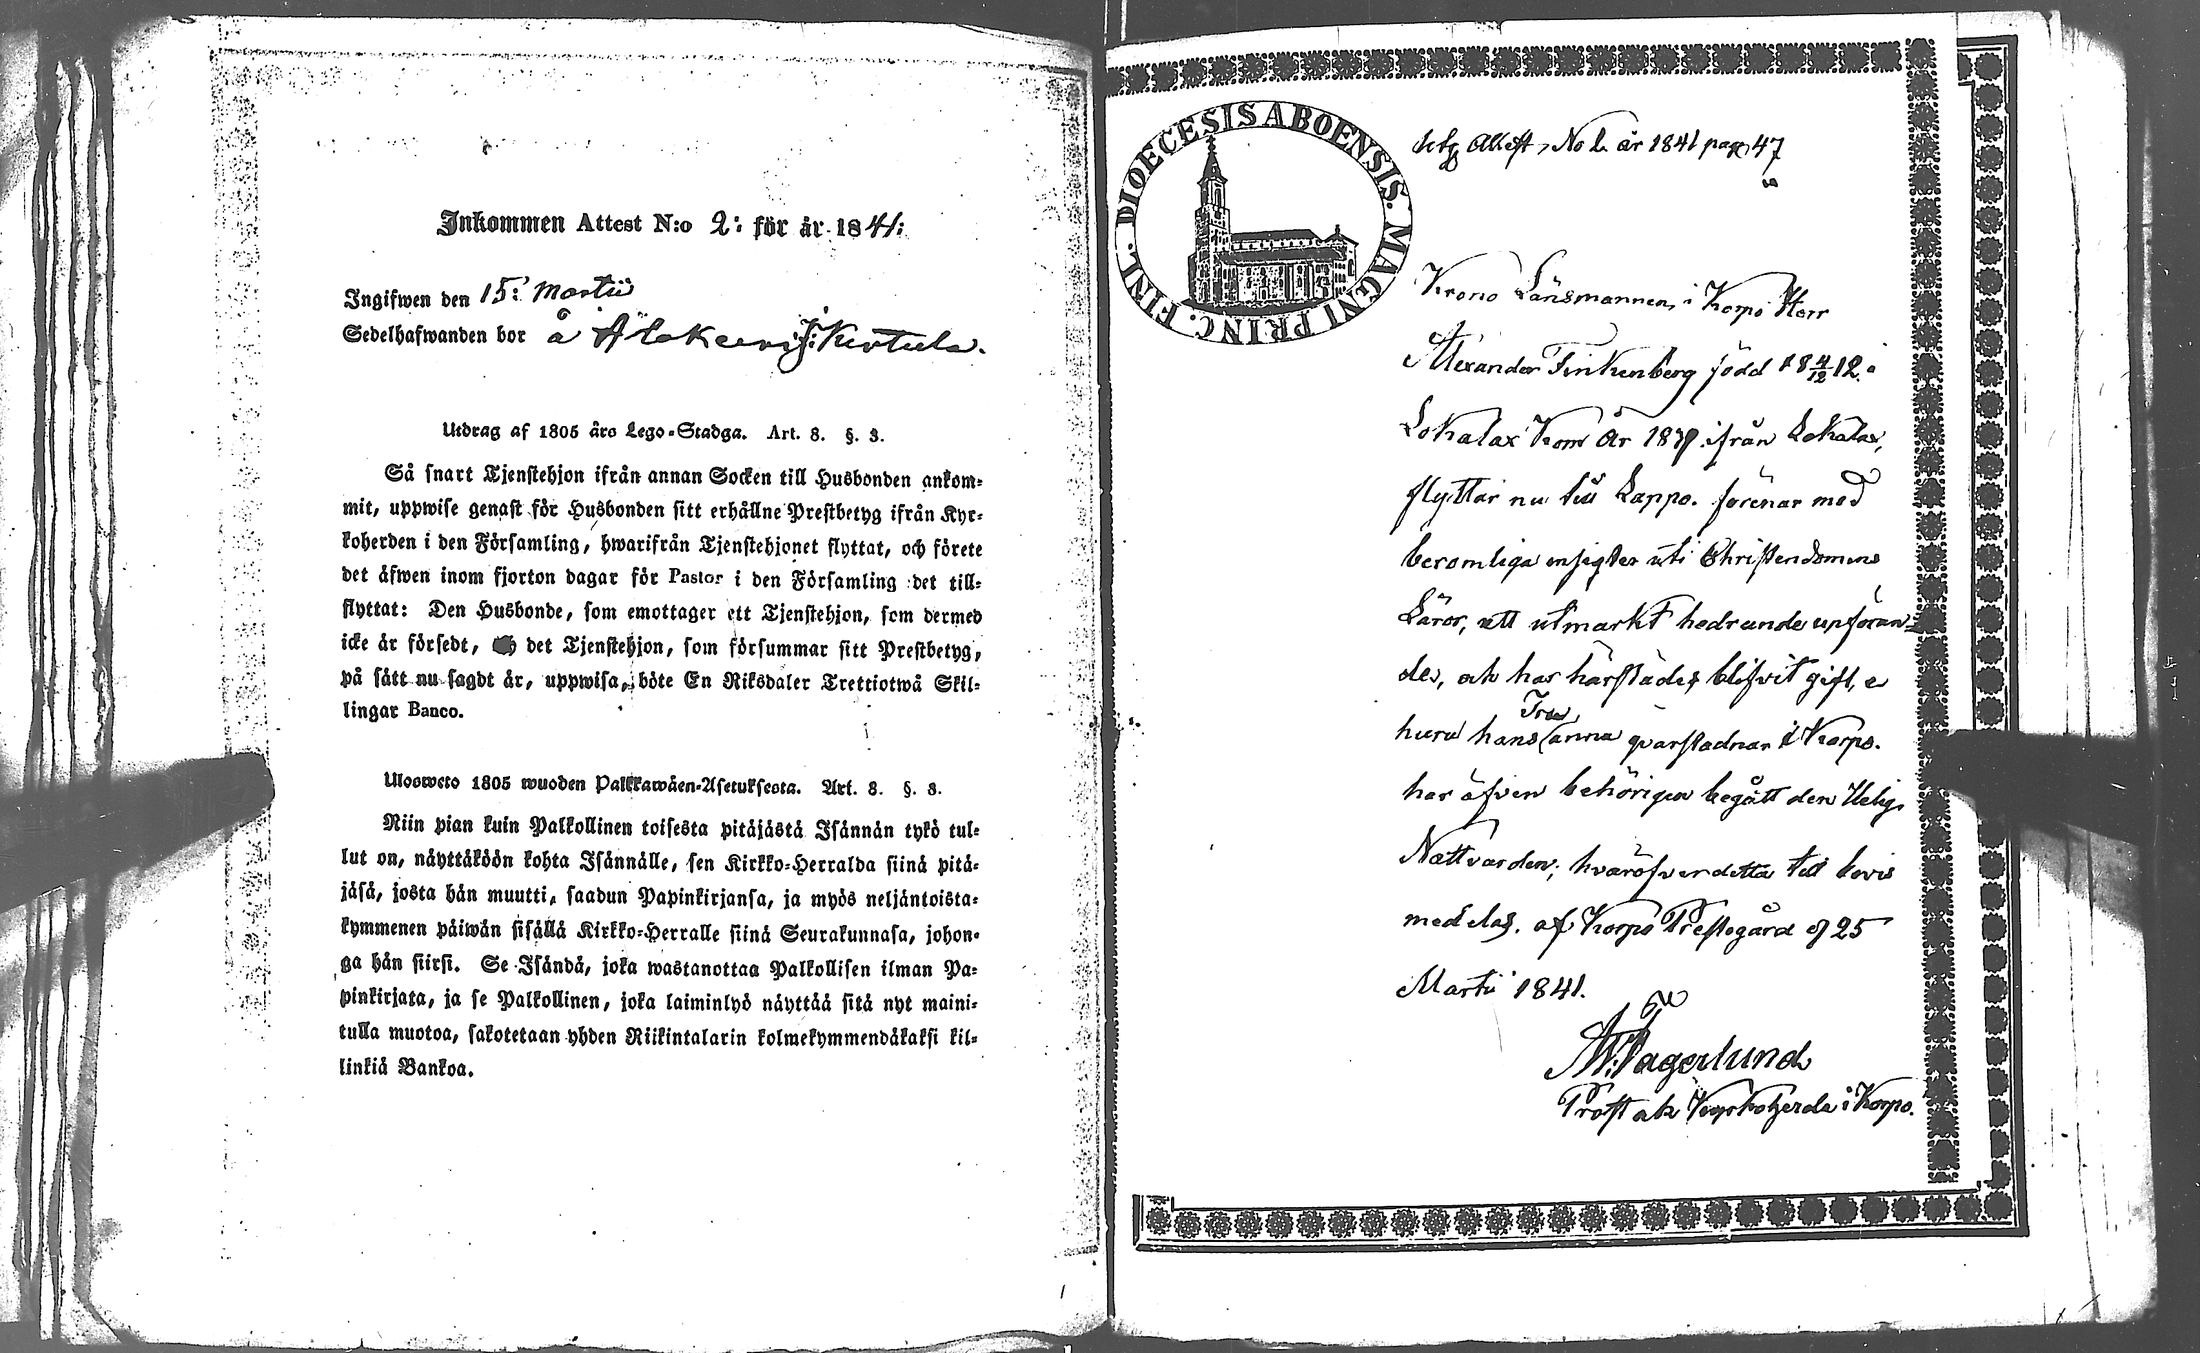 Inkommen Attest N:o 2: för år 1841:
Ingifwen den 15: Martii
Sedelhafwanden bor å
Utdrag af 1805 års Lego-Stadga. Art. 8. §. 3.
Så snart Tjenstehjon ifrån annan Socken till Husbonden ankom-
mit, uppwise genast för Husbonden sitt erhållne Prestbetyg ifrån Kyr-
koherden i den Församling, hwarifrån Tjenstehjonet flyttat, och förete
det äfwen inom fjorton dagar för Pastor i den Församling det till-
flyttat: Den Husbonde, som emottager ett Tjenstehjon, som dermed
icke är försedt, det Tjenstehjon, som försummar sitt Prestbetyg,
på sätt nu sagdt är, uppwisa, böte En Riksdaler Trettiotwå Skil-
lingar Banco.
Ulosweto 1805 wuoden Palkkawäen-Asetuksesta. Art. 8. §. 3.
Niin pian kuin Palkollinen toisesta pitäjästä Isännän tykö tul-
lut on, näyttäköön kohta Isännälle, sen Kirkko-Herralda siinä pitä-
jäsä, josta hän muutti, saadun Papinkirjansa, ja myös neljäntoista-
kymmenen päiwän sisällä Kirkko-Herralle siinä Seurakunnasa, johon-
ga hän siirsi. Se Isändä, joka wastanottaa Palkollisen ilman Pa-
pinkirjata, ja se Palkollinen, joka laiminlyö näyttää sitä nyt maini-
tulla muotoa, sakotetaan yhden Riikintalarin kolmekymmendäkaksi kil-
linkiä Bankoa.
FINL. DIOECESIS ABOENSIS. MAGNI PRINC.
Attest, No 2. år 1841 pag 47
Krono Länsmannen i Korpo Herr
Alexander Finkenberg född 18 4/12 12. i
Lokalax Kom år 18 ifrån Lokalax,
flyttar nu till Lappo. förenar med
beromliga insigter uti Christendomens
Läror, ett utmärkt hedrande uppföran-
de, och har härstädes blifvit gift, e
huru hans Fru Anna qvarstadnar i Korpo.
har äfven behörigen begått den Helig.
Nattvarden; hvaröfver detta till bevis
meddelas. af Korpo Prestegård d 25
Martii 1841.
Fagerlund
Prost och Kyrkoherde i Korpo.